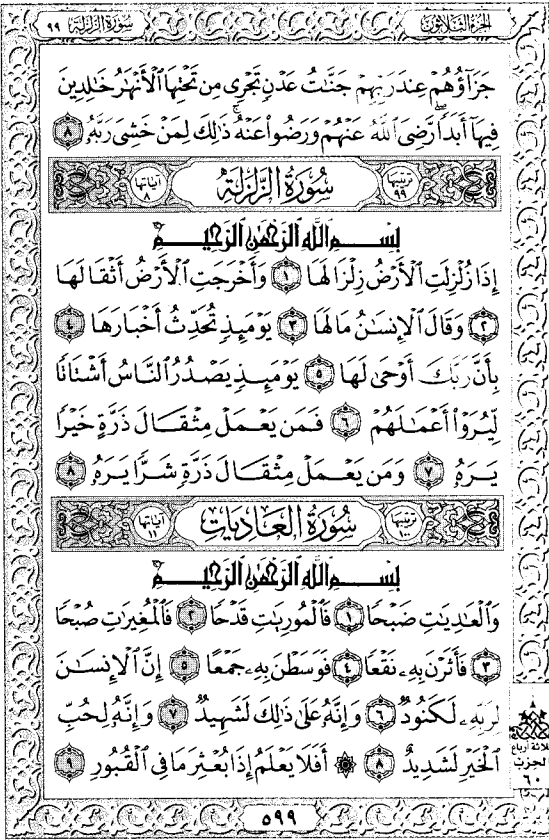 سورة الزلزلة ٩٩
الجزء الثلاثون
جَزَآؤُهُمْ عِندَ رَبِّهِمْ جَنَّٰتُ عَدْنٍ تَجْرِى مِن تَحْتِهَا ٱلْأَنْهَٰرُ خَٰلِدِينَ
فِيهَآ أَبَدًا رَّضِىَ ٱللَّهُ عَنْهُمْ وَرَضُوا۟ عَنْهُ ذَٰلِكَ لِمَنْ خَشِىَ رَبَّهُۥ ٨
ترتيبها ٩٩ سُورَةُ الزَّلْزَلَةِ آياتها ٨
بِسْمِ ٱللَّهِ ٱلرَّحْمَٰنِ ٱلرَّحِيمِ
إِذَا زُلْزِلَتِ ٱلْأَرْضُ زِلْزَالَهَا ١ وَأَخْرَجَتِ ٱلْأَرْضُ أَثْقَالَهَا
٢ وَقَالَ ٱلْإِنسَٰنُ مَا لَهَا ٣ يَوْمَئِذٍ تُحَدِّثُ أَخْبَارَهَا ٤
بِأَنَّ رَبَّكَ أَوْحَىٰ لَهَا ٥ يَوْمَئِذٍ يَصْدُرُ ٱلنَّاسُ أَشْتَاتًا
لِّيُرَوْا۟ أَعْمَٰلَهُمْ ٦ فَمَن يَعْمَلْ مِثْقَالَ ذَرَّةٍ خَيْرًا
يَرَهُۥ ٧ وَمَن يَعْمَلْ مِثْقَالَ ذَرَّةٍ شَرًّا يَرَهُۥ ٨
ترتيبها ١٠٠ سُورَةُ الْعَادِيَاتِ آياتها ١١
بِسْمِ ٱللَّهِ ٱلرَّحْمَٰنِ ٱلرَّحِيمِ
وَٱلْعَٰدِيَٰتِ ضَبْحًا ١ فَٱلْمُورِيَٰتِ قَدْحًا ٢ فَٱلْمُغِيرَٰتِ صُبْحًا
٣ فَأَثَرْنَ بِهِۦ نَقْعًا ٤ فَوَسَطْنَ بِهِۦ جَمْعًا ٥ إِنَّ ٱلْإِنسَٰنَ
لِرَبِّهِۦ لَكَنُودٌ ٦ وَإِنَّهُۥ عَلَىٰ ذَٰلِكَ لَشَهِيدٌ ٧ وَإِنَّهُۥ لِحُبِّ
ٱلْخَيْرِ لَشَدِيدٌ ٨ ۞ أَفَلَا يَعْلَمُ إِذَا بُعْثِرَ مَا فِى ٱلْقُبُورِ ٩
ثلاثة أرباع
الحزب
٦٠
٥٩٩